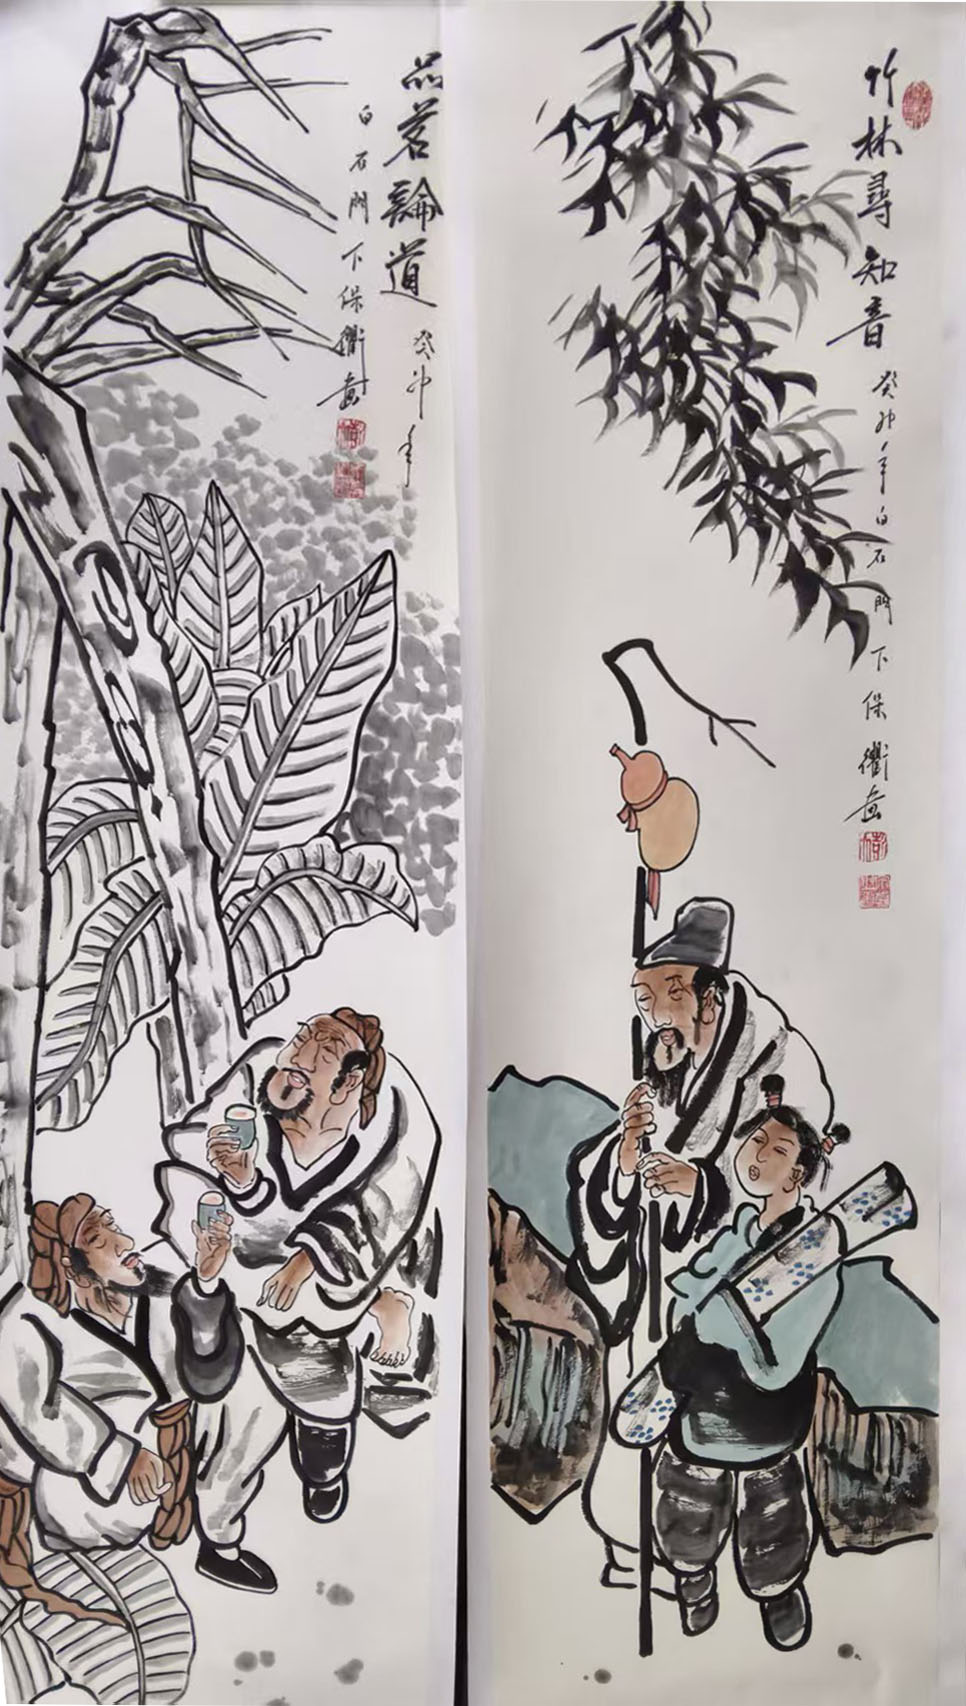 竹林尋知音
癸卯年白石門下保衢畫
品茗論道
癸卯年
白石門下保衢畫